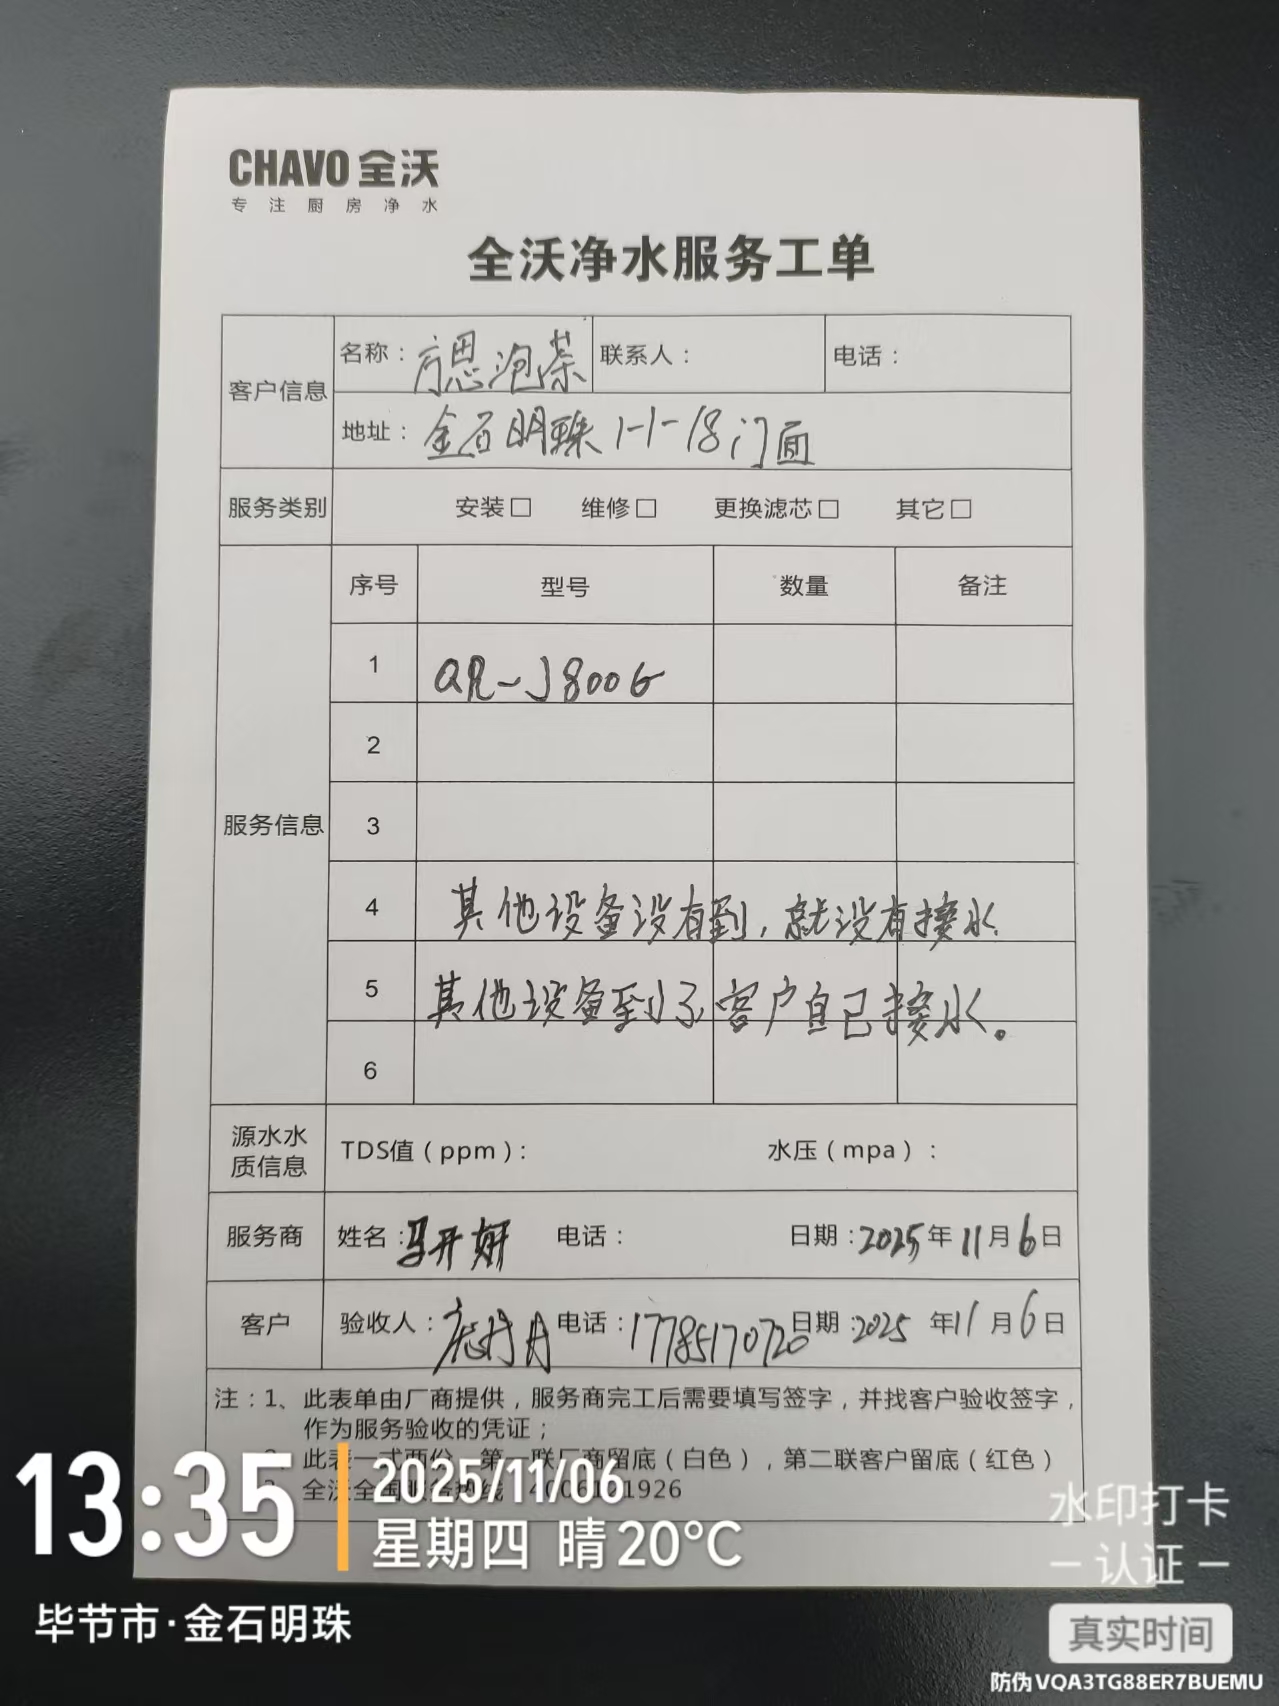 CHAVO 全沃
专注厨房净水
全沃净水服务工单
客户信息 名称：方思泡茶 联系人： 电话：
地址：金石明珠1-1-18门面
服务类别 安装□ 维修□ 更换滤芯□ 其它□
服务信息 序号 型号 数量 备注
1 QR-J800G
2
3
4 其他设备没有到，就没有接水
5 其他设备到了客户自己接水。
6
源水水质信息 TDS值（ppm）： 水压（mpa）：
服务商 姓名：马开妍 电话： 日期：2025年11月6日
客户 验收人： 电话：17785170720 日期：2025年11月6日
注：1、此表单由厂商提供，服务商完工后需要填写签字，并找客户验收签字，
作为服务验收的凭证；
此表一式两份，第一联厂商留底（白色），第二联客户留底（红色）
全沃全国服务热线
13:35
2025/11/06
星期四 晴 20°C
毕节市·金石明珠
水印打卡
认证
真实时间
防伪 VQA3TG88ER7BUEMU